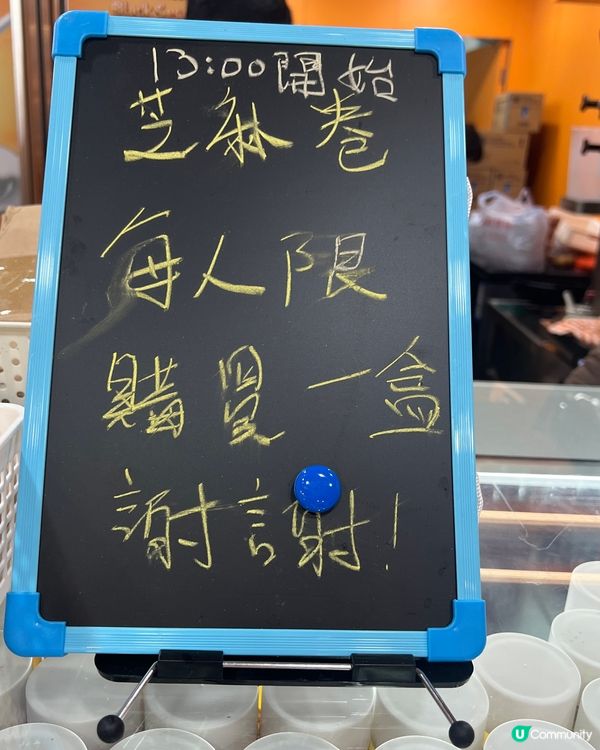 13:00開始
芝麻卷
每人限
購買一盒
謝謝!
U Community